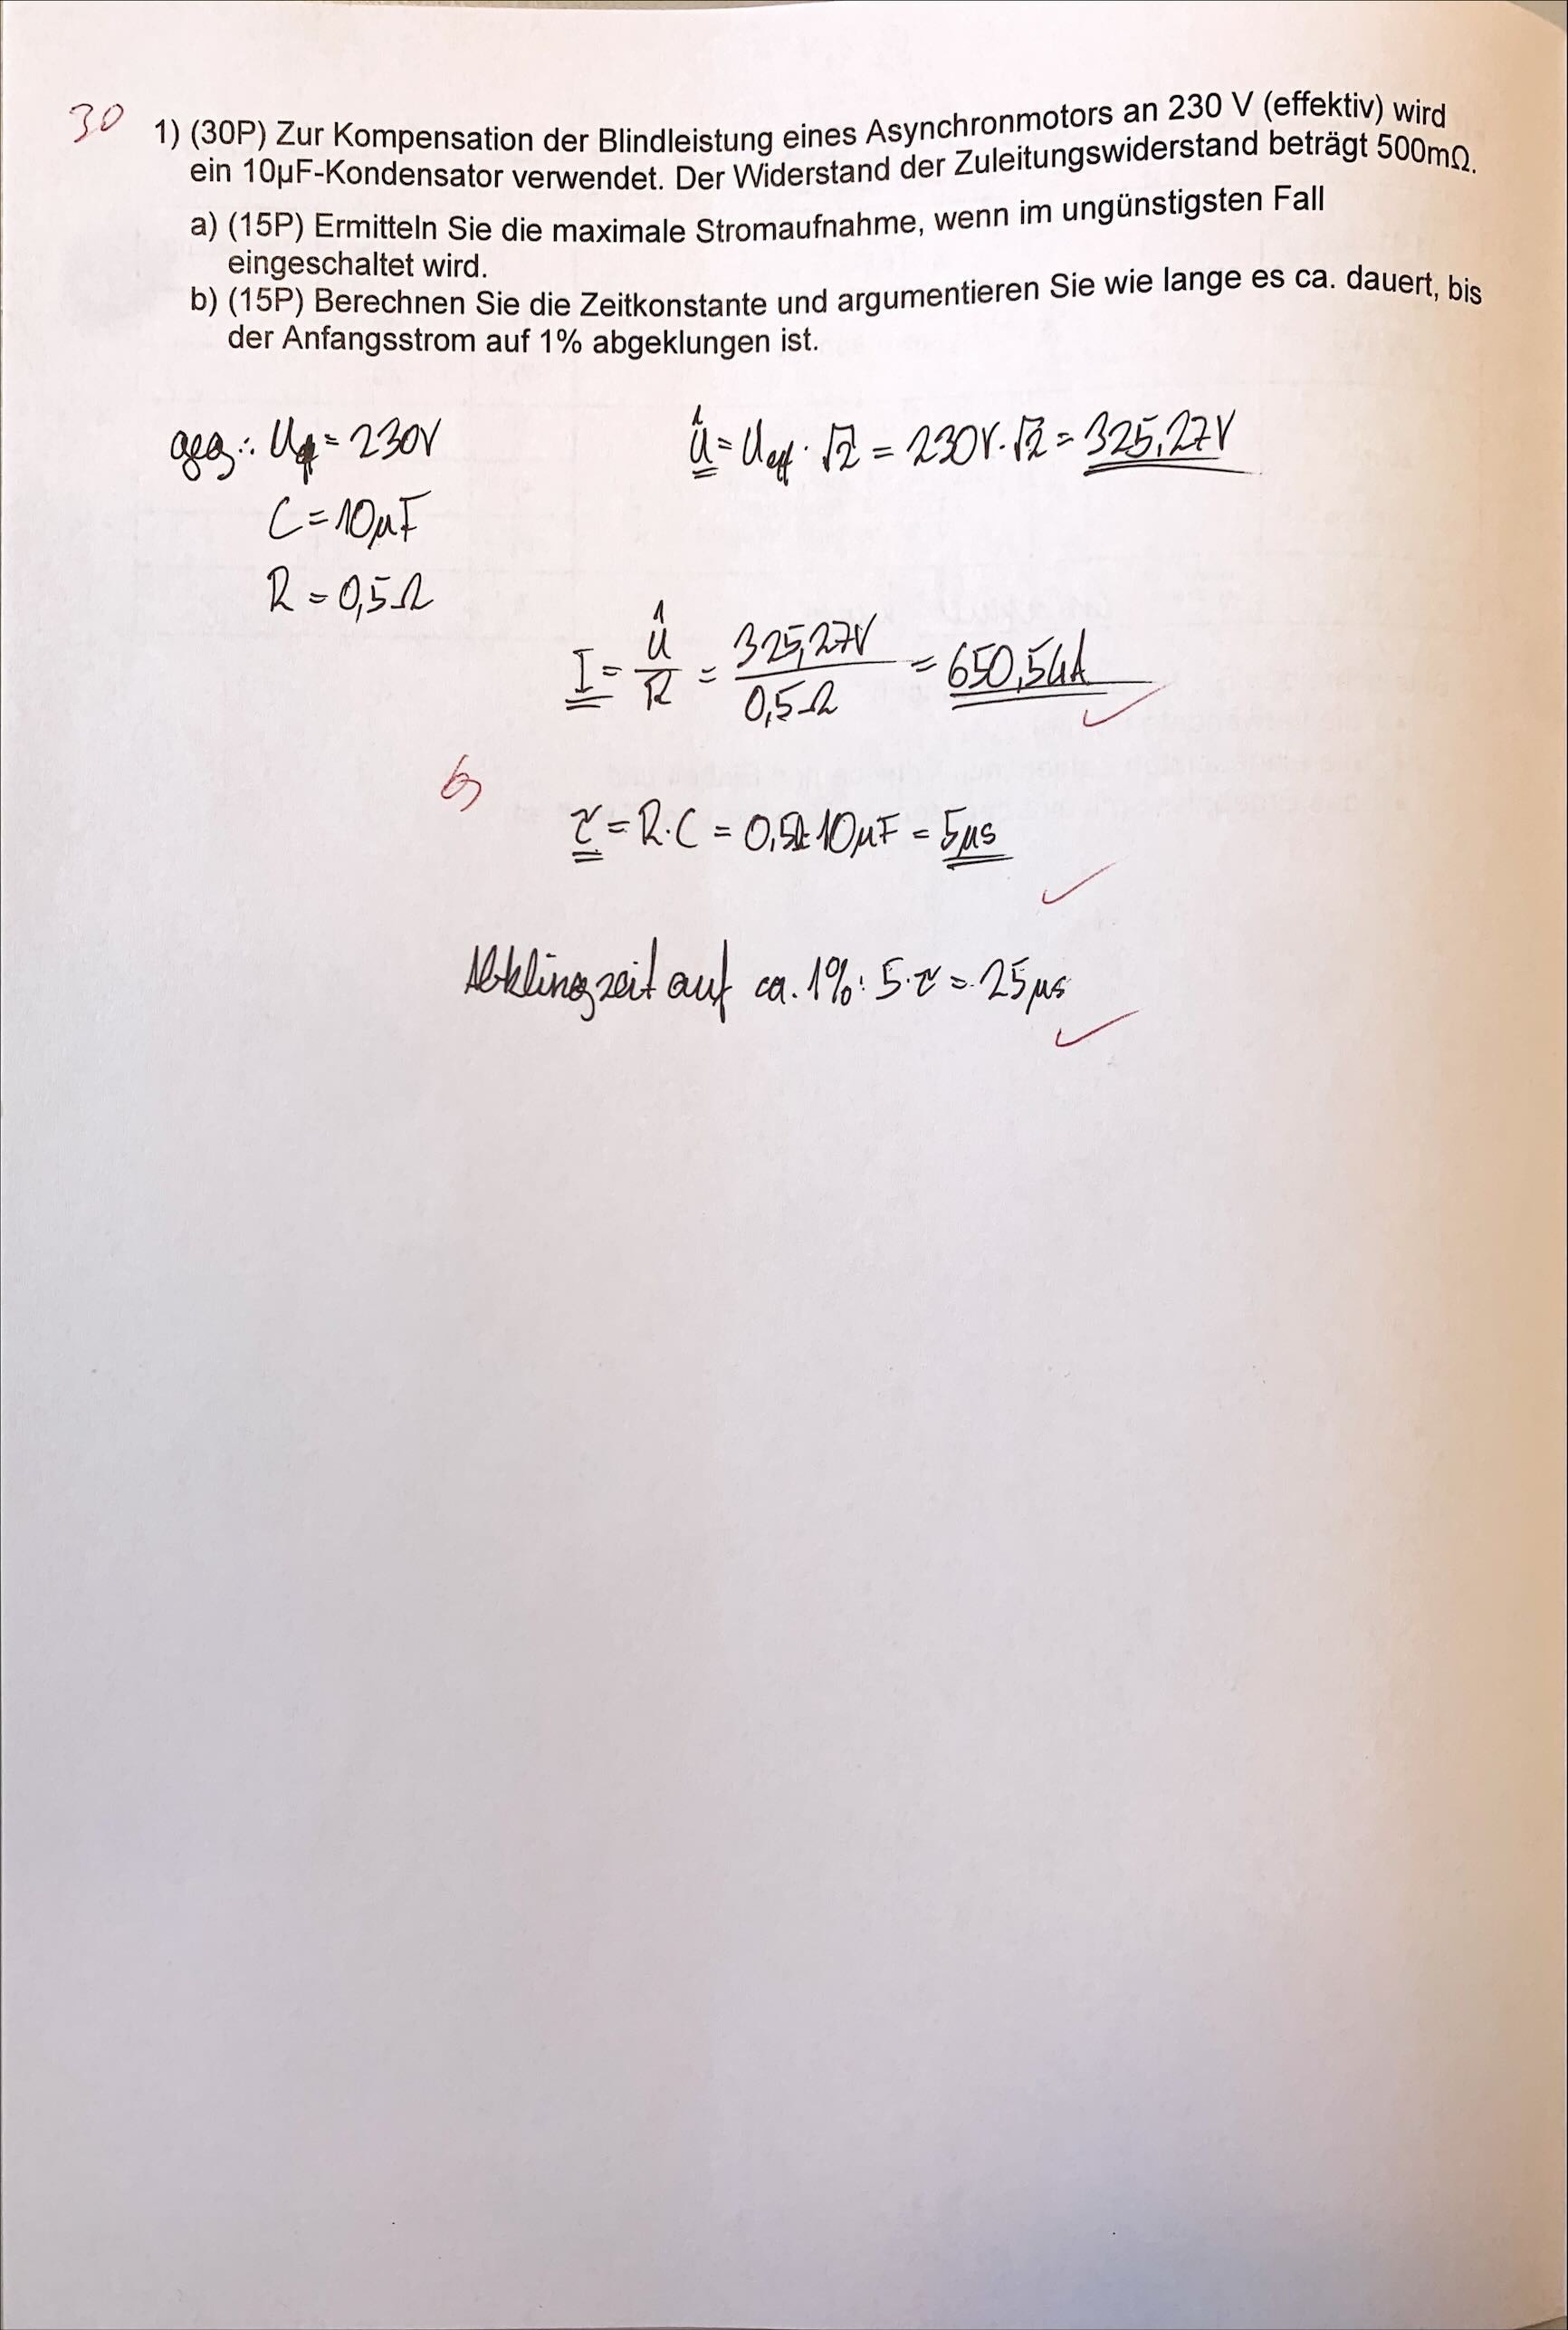 30
1) (30P) Zur Kompensation der Blindleistung eines Asynchronmotors an 230 V (effektiv) wird
ein 10µF-Kondensator verwendet. Der Widerstand der Zuleitungswiderstand beträgt 500mΩ.
a) (15P) Ermitteln Sie die maximale Stromaufnahme, wenn im ungünstigsten Fall
eingeschaltet wird.
b) (15P) Berechnen Sie die Zeitkonstante und argumentieren Sie wie lange es ca. dauert, bis
der Anfangsstrom auf 1% abgeklungen ist.
geg.: Ueff = 230V
û = Ueff · √2 = 230V · √2 = 325,27V
C = 10µF
R = 0,5Ω
I = û/R = 325,27V/0,5Ω = 650,54A
b)
τ = R·C = 0,5Ω·10µF = 5µs
Abklingzeit auf ca. 1%: 5·τ = 25µs